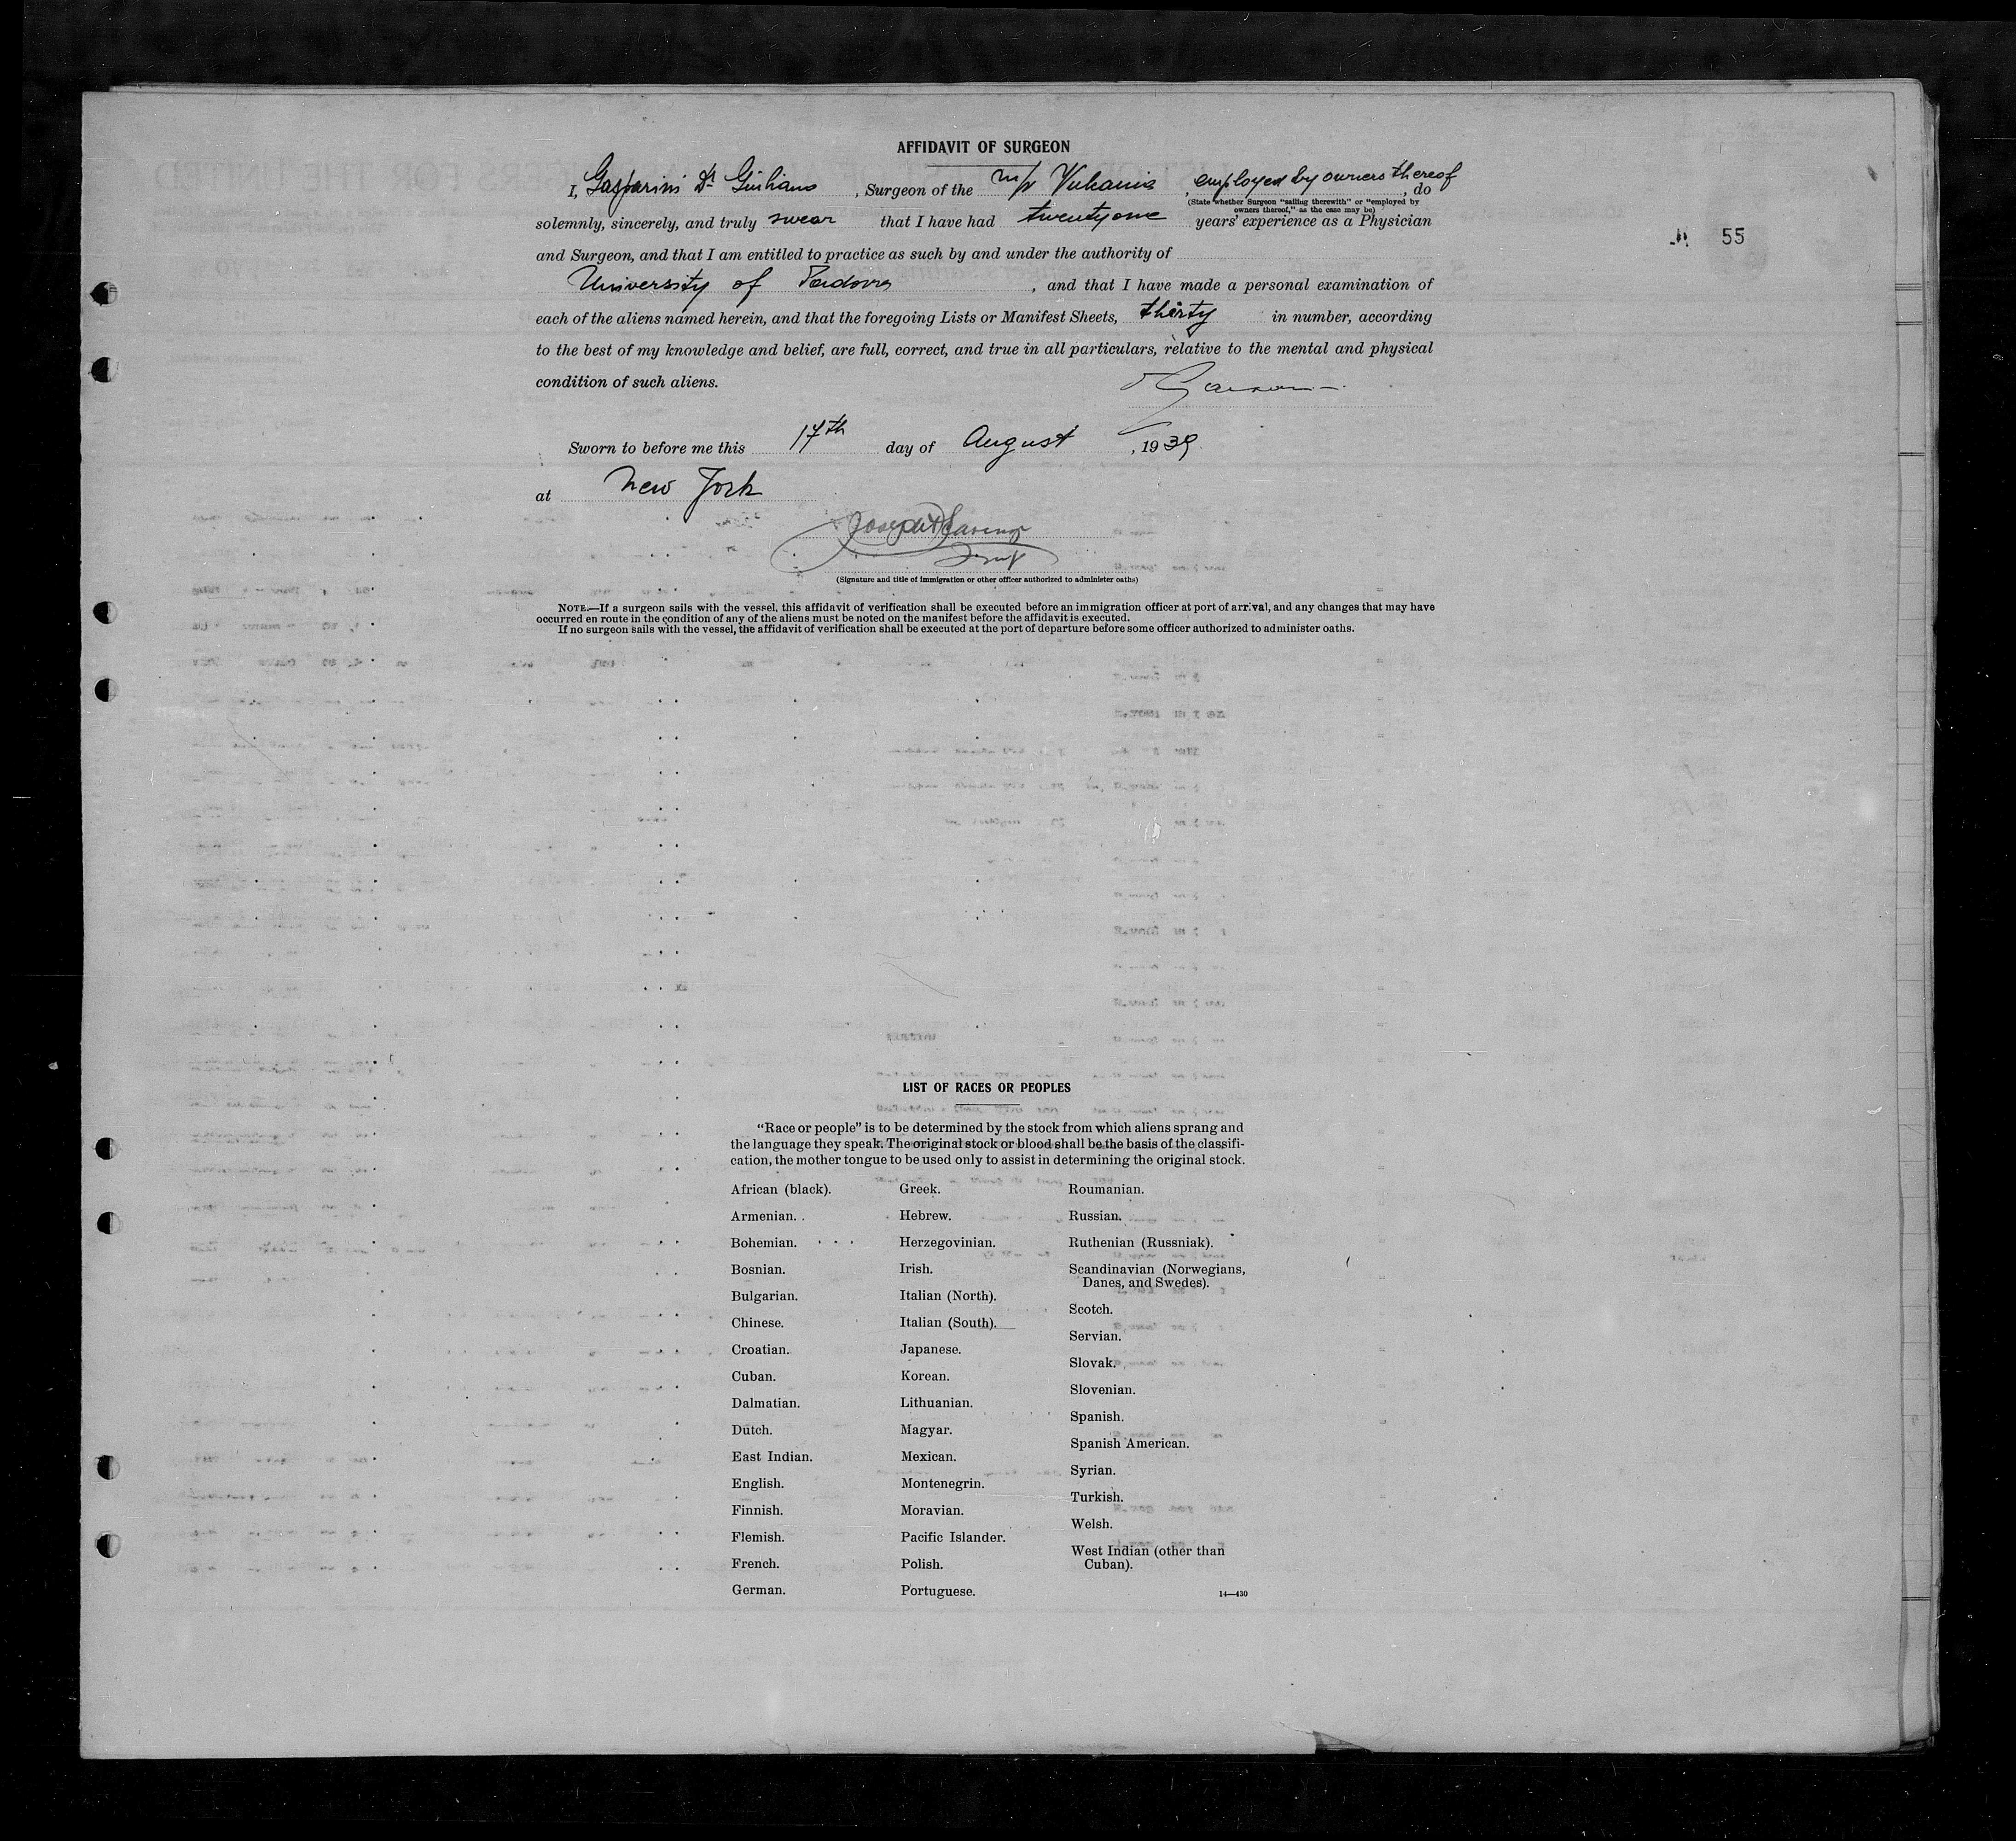 AFFIDAVIT OF SURGEON
I, Gasparini Dr Giuliano, Surgeon of the m/v Vulcania, employed by owners thereof, do
(State whether Surgeon “sailing therewith” or “employed by
owners thereof,” as the case may be)
solemnly, sincerely, and truly swear that I have had twentyone years’ experience as a Physician
55
and Surgeon, and that I am entitled to practice as such by and under the authority of
University of Padova, and that I have made a personal examination of
each of the aliens named herein, and that the foregoing Lists or Manifest Sheets, thirty in number, according
to the best of my knowledge and belief, are full, correct, and true in all particulars, relative to the mental and physical
condition of such aliens.
Sworn to before me this 17th day of August, 1939
at New York
(Signature and title of immigration or other officer authorized to administer oaths)
NOTE.—If a surgeon sails with the vessel, this affidavit of verification shall be executed before an immigration officer at port of arrival, and any changes that may have
occurred en route in the condition of any of the aliens must be noted on the manifest before the affidavit is executed.
If no surgeon sails with the vessel, the affidavit of verification shall be executed at the port of departure before some officer authorized to administer oaths.
LIST OF RACES OR PEOPLES
“Race or people” is to be determined by the stock from which aliens sprang and
the language they speak. The original stock or blood shall be the basis of the classifi-
cation, the mother tongue to be used only to assist in determining the original stock.
African (black).
Armenian.
Bohemian.
Bosnian.
Bulgarian.
Chinese.
Croatian.
Cuban.
Dalmatian.
Dutch.
East Indian.
English.
Finnish.
Flemish.
French.
German.
Greek.
Hebrew.
Herzegovinian.
Irish.
Italian (North).
Italian (South).
Japanese.
Korean.
Lithuanian.
Magyar.
Mexican.
Montenegrin.
Moravian.
Pacific Islander.
Polish.
Portuguese.
Roumanian.
Russian.
Ruthenian (Russniak).
Scandinavian (Norwegians,
Danes, and Swedes).
Scotch.
Servian.
Slovak.
Slovenian.
Spanish.
Spanish American.
Syrian.
Turkish.
Welsh.
West Indian (other than
Cuban).
14—430